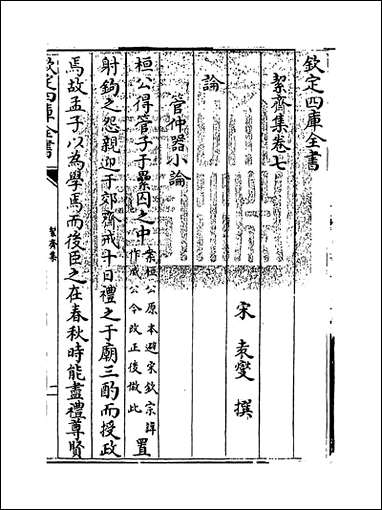 欽定四庫全書
絜齋集卷七
宋 袁燮 撰
論
管仲器小論
桓公得管子于累囚之中案桓公原本避宋欽宗諱作威公今改正後倣此置
射鈎之怨親迎于郊齊戒十日禮之于廟三酌而授政
焉故孟子以為學焉而後臣之在春秋時能盡禮尊賢
欽定四庫全書
絜齋集
一